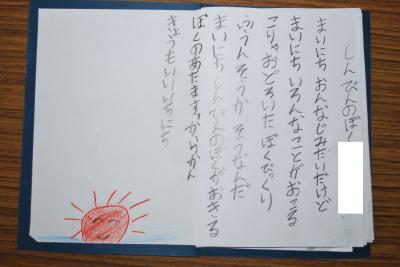 しんぴんのぼく
まいにち おんなじみたいだけど
まいにち いろんなことがおこる
こりゃおどろいた ぼくびっくり
ふうんそうか そうなんだ
まいにち しんぴんのぼくがおきる
ぼくのあたますっからかん
きょうもいいいちにち